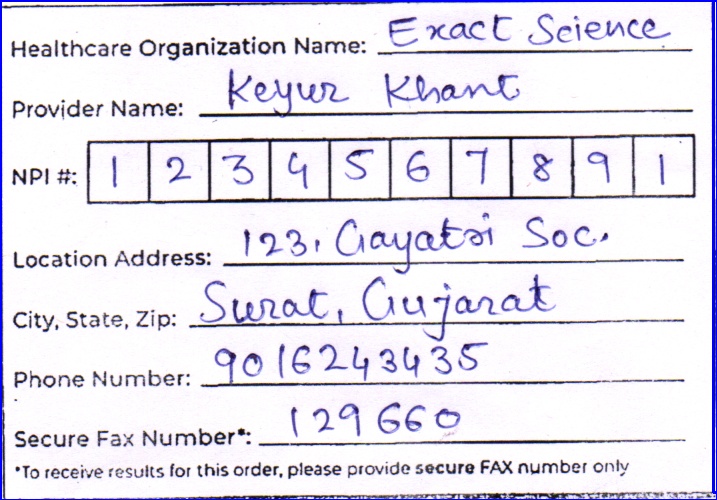 Healthcare Organization Name: Exact Science
Provider Name: Keyur Khant
NPI #: 1 2 3 4 5 6 7 8 9 1
Location Address: 123, Gayatri Soc.
City, State, Zip: Surat, Gujarat
Phone Number: 9016243435
Secure Fax Number*: 129660
*To receive results for this order, please provide secure FAX number only